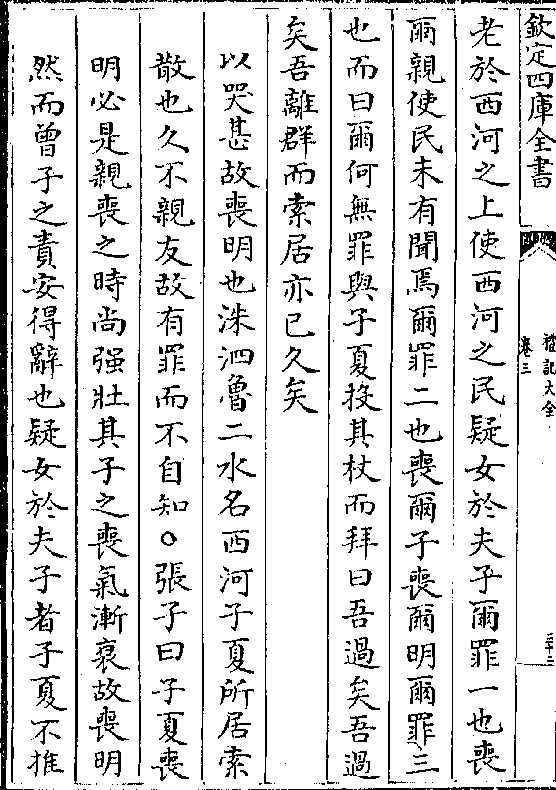 欽定四庫全書
禮記大全
卷三
三十三
老於西河之上使西河之民疑女於夫子爾罪一也喪
爾親使民未有聞焉爾罪二也喪爾子喪爾明爾罪三
也而曰爾何無罪與子夏投其杖而拜曰吾過矣吾過
矣吾離群而索居亦已久矣
以哭甚故喪明也洙泗魯二水名西河子夏所居索
散也久不親友故有罪而不自知○張子曰子夏喪
明必是親喪之時尚强壯其子之喪氣漸衰故喪明
然而曾子之責安得辭也疑女於夫子者子夏不推